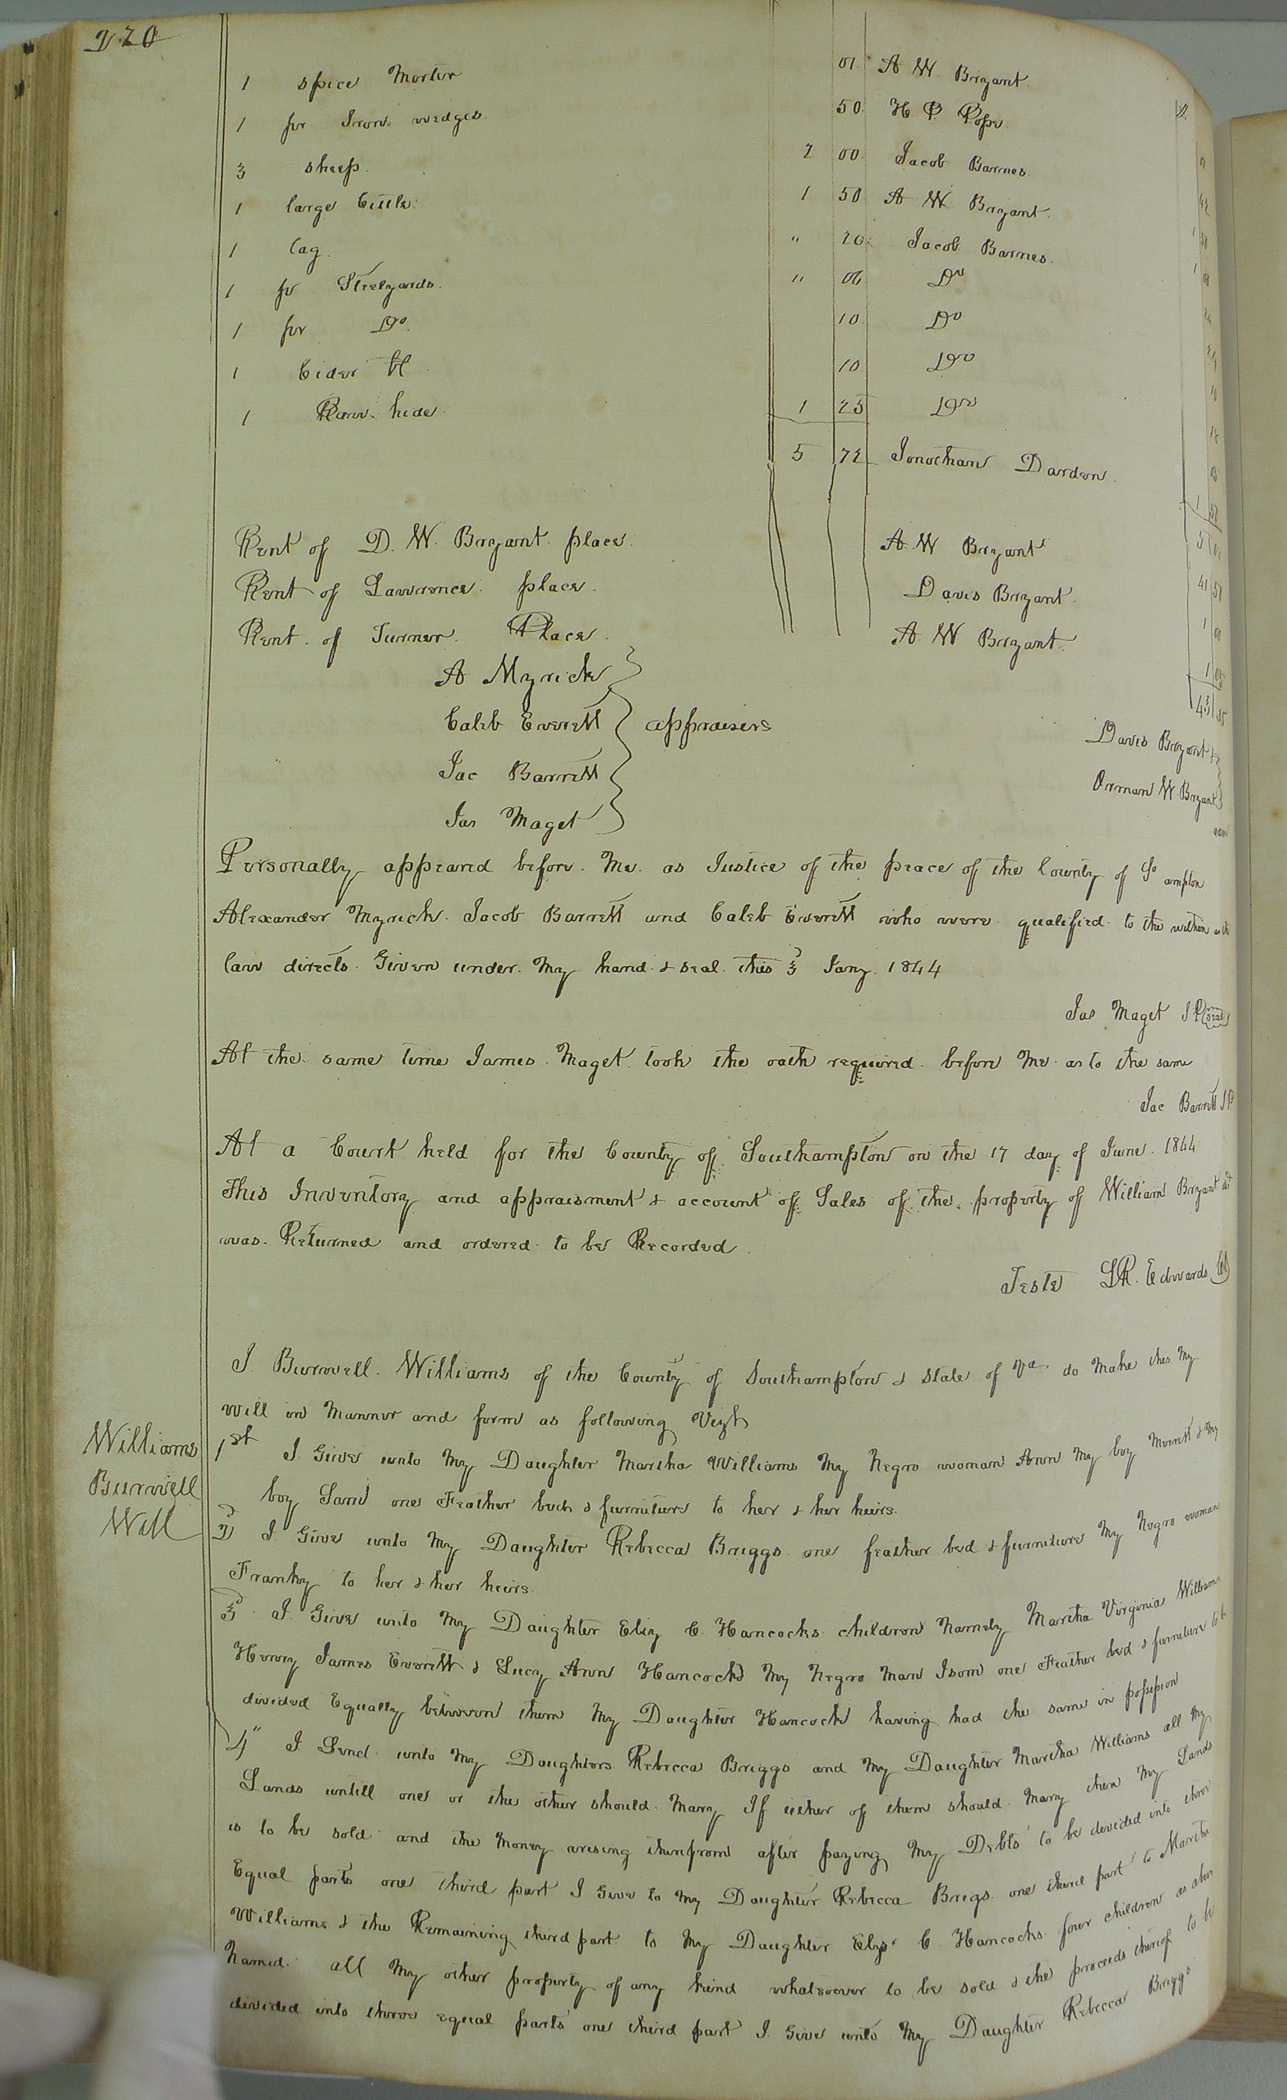 220
1 spice Morter 01 A W Bryant
1 pr Iron wedges 50 H P Pope
3 sheep 2 00 Jacob Barnes
1 large Cittle 1 50 A W Bryant
1 Cag " 20 Jacob Barnes
1 pr Steelyards " 06 Do
1 pr Do 10 Do
1 Cider 10 Do
1 Raw hide 1 25 Do
5 72 Jonothan Darden
Rent of D. W. Bryant place A W Bryant
Rent of Lawrence place Davis Bryant
Rent of Turner Place A W Bryant
A Myrick
Caleb Everett appraisers
Jac Barrett
Jas Maget
Davis Bryant &
Orman W Bryant
Personally appeared before Me as Justice of the peace of the County of So ampton
Alexander Myrick Jacob Barrett and Caleb Everett who were qualified to the within as the
law directs Given under My hand & seal this 3 Jany 1844
Jas Maget J P seal
At the same time James Maget took the oath required before Me as to the same
Jac Barrett J P
At a Court held for the County of Southampton on the 17 day of June 1844
This Inventory and appraisment & account of Sales of the property of William Bryant
was Returned and ordered to be Recorded
Teste L R. Edwards
Williams
Burwell
Will
I Burwell Williams of the County of Southampton & State of Va do Make this My
Will in Manner and form as following Vizt
1st I Give unto My Daughter Martha Williams My Negro woman Ann My boy & My
boy Sam one Feather bed & furniture to her & her heirs
2 I Give unto My Daughter Rebecca Briggs one feather bed & furniture My Negro woman
Franky to her & her heirs
3 I Give unto My Daughter Eliz C Hancocks children Namely Martha Virginia Williams
Henry James Everett & Lucy Ann Hancock My Negro Man Isom one Feather bed & furniture to be
divided Equally between them My Daughter Hancock having had the same in possession
4" I Lend unto My Daughters Rebecca Briggs and My Daughter Martha Williams all My
Lands untill one or the other should Mary If either of them should Mary then My Lands
is to be sold and the Money arising therefrom after paying My Debts to be devided into three
Equal parts one third part I Give to My Daughter Rebecca Brigs one third part to Martha
Williams & the Remaining third part to My Daughter Eliza C Hancocks four children as above
Named all My other property of any kind whatsoever to be sold & the proceeds thereof to be
divided into three equal parts one third part I Give unto My Daughter Rebecca Briggs